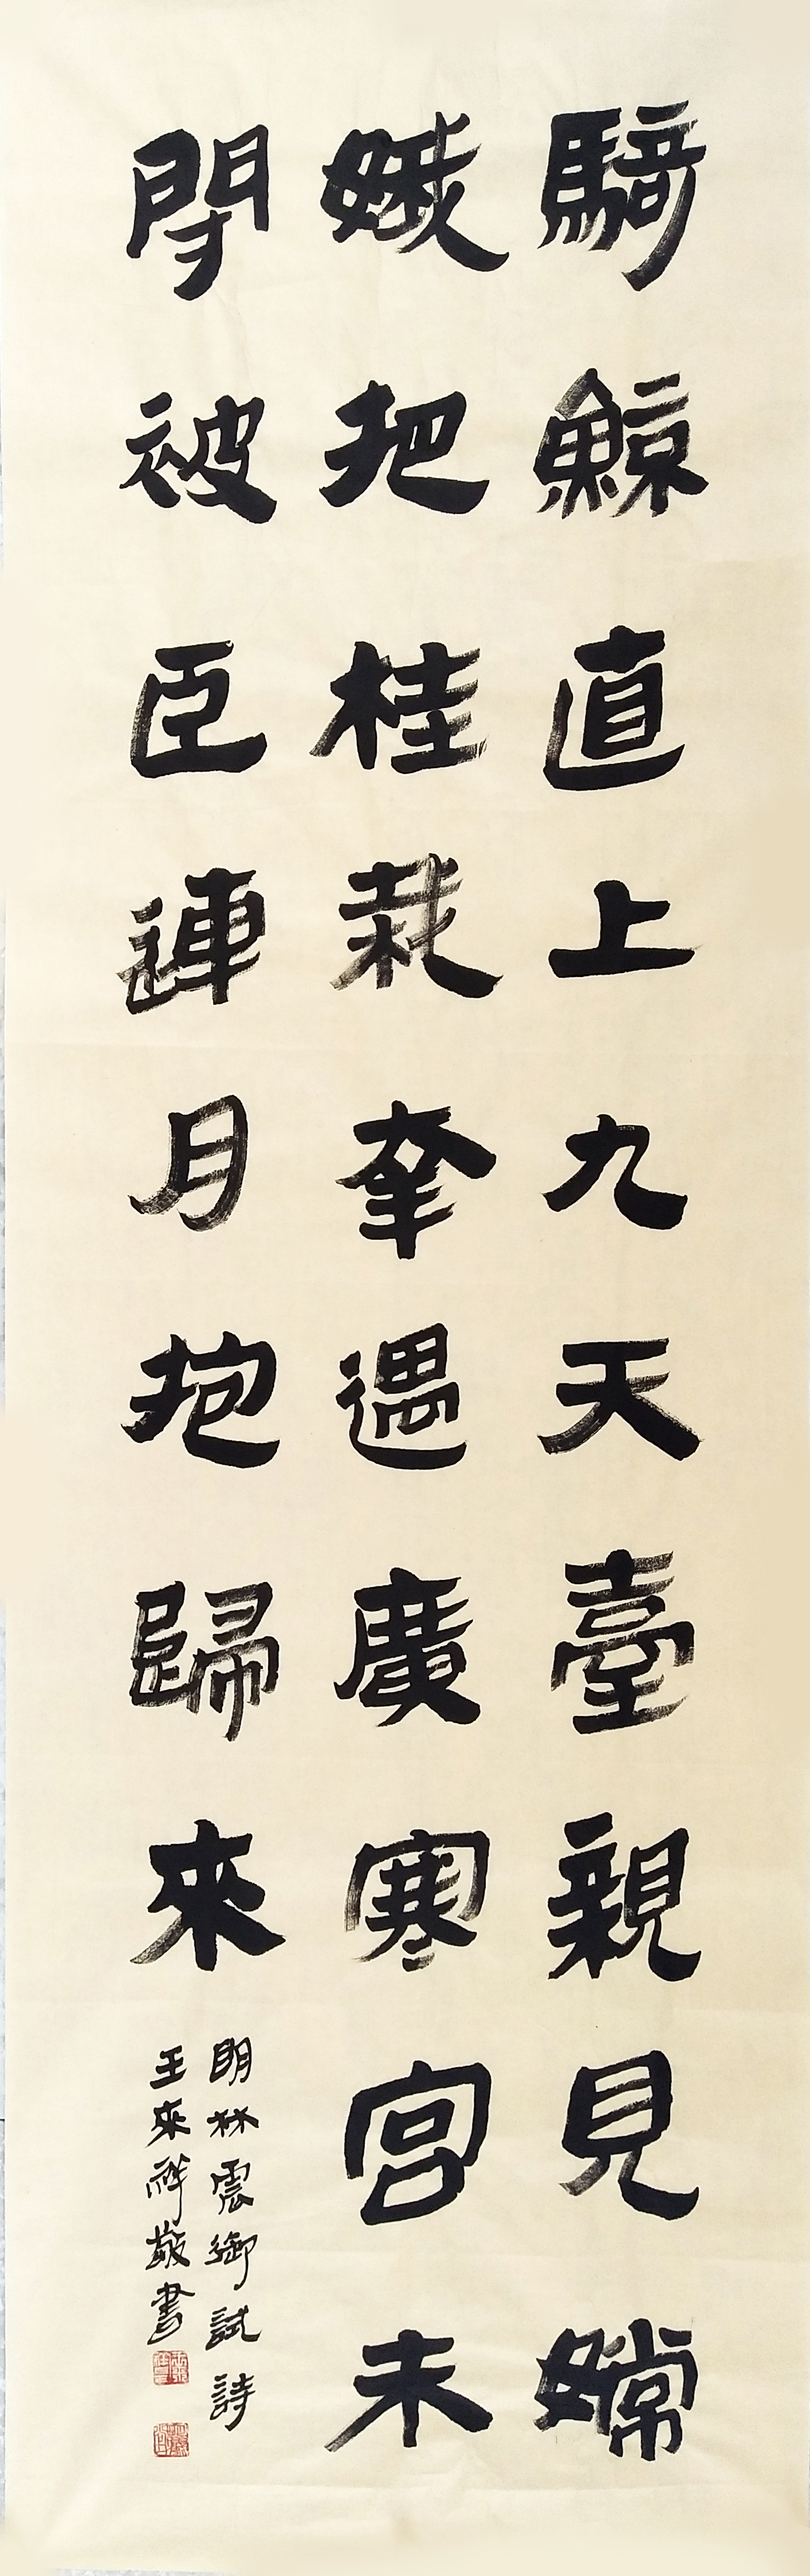 騎鯨直上九天臺親見嫦
娥把桂栽奎遇廣寒宮未
閉被臣連月抱歸來
明林震御試詩
王來祥敬書